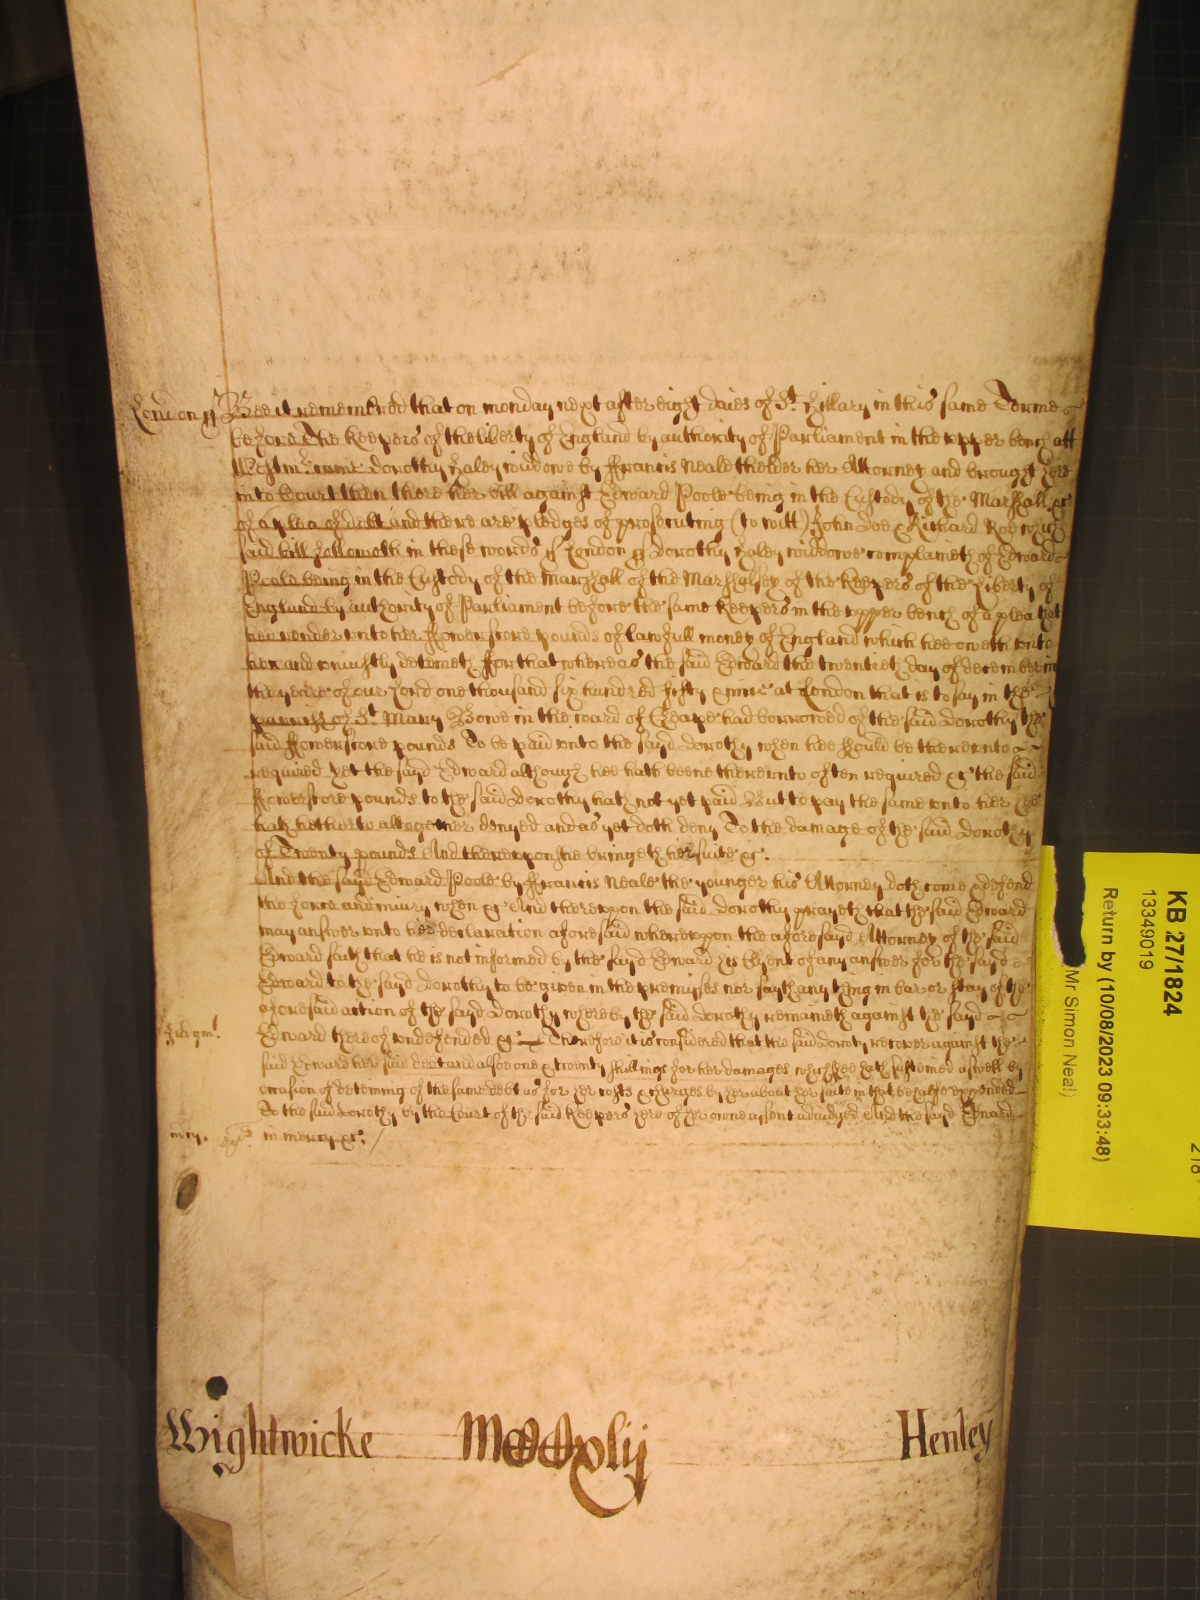 London ss Bee it remembred that on monday next after eight daies of St. Hillary in this same Terme
before The Keepers of the liberty of England by authority of Parliament in the upper bench att
Westmr. came Dorothy Haley widdowe by Ffrancis Neale thelder her Attorney and brought here
into Court then there her bill against Edward Poole being in the Custody of the Marshall &c
of a plea of debt and there are pledges of prosecuting (to witt) John Doe & Richard Roe which
said bill followeth in these words ss London ss Dorothy Haley widdowe complaineth of Edward
Poole being in the Custody of the Marshall of the Marshalsey of the Keepers of the Liberty of
England by authority of Parliament before the same Keepers in the upper bench of a plea that
hee render unto her Ffowerscore pounds of lawfull money of England which hee oweth unto
her and uniustly deteineth Ffor that whereas the said Edward the twentieth day of december in
the yeare of our Lord one thousand six hundred fifty & nine at London that is to say in the
parrish of St. Mary Bowe in the ward of Cheape had borrowed of the said Dorothy the
said Ffowerscore pounds To be paid unto the said Dorothy when hee should be thereunto
required Yet the said Edward although hee hath beene thereunto often required &c the said
Ffowerscore pounds to the said Dorothy hath not yet paid But to pay the same unto her hee
hath hitherto altogether denyed and as yet doth deny To the damage of the said Dorothy
of Twenty pounds And thereupon she bringeth her suite &c.
And the said Edward Poole by Ffrancis Neale the younger his Attorney doth come & defend
the force and iniury when &c And thereupon the said Dorothy prayeth that the said Edward
may answer unto her declaration aforesaid whereupon the aforesaid Attorney of the said
Edward saith that he is not informed by the said Edward his Clyent of any answer for the said
Edward to the said Dorothy to be given in the premisses nor sayth any thing in bar or stay of the
aforesaid action of the said Dorothy whereby the said Dorothy remaineth against the said
Judgmt. Edward thereof undefended &c Therefore it is considered that the said Doroty recover against the
said Edward her said debt and also one & twenty shillings for her damages which shee hath susteined aswell by
occasion of deteining of the same debt as for her costs & charges by her about her suite in that behalfe expended
To the said Dorothy by the Court of the said Keepers here of her owne assent adiudged And the said Edward
mcy. in mercy &c.
Wightwicke MCCxlij Henley
KB 27/1824
13349019
Return by (10/08/2023 09:33:48)
Mr Simon Neal